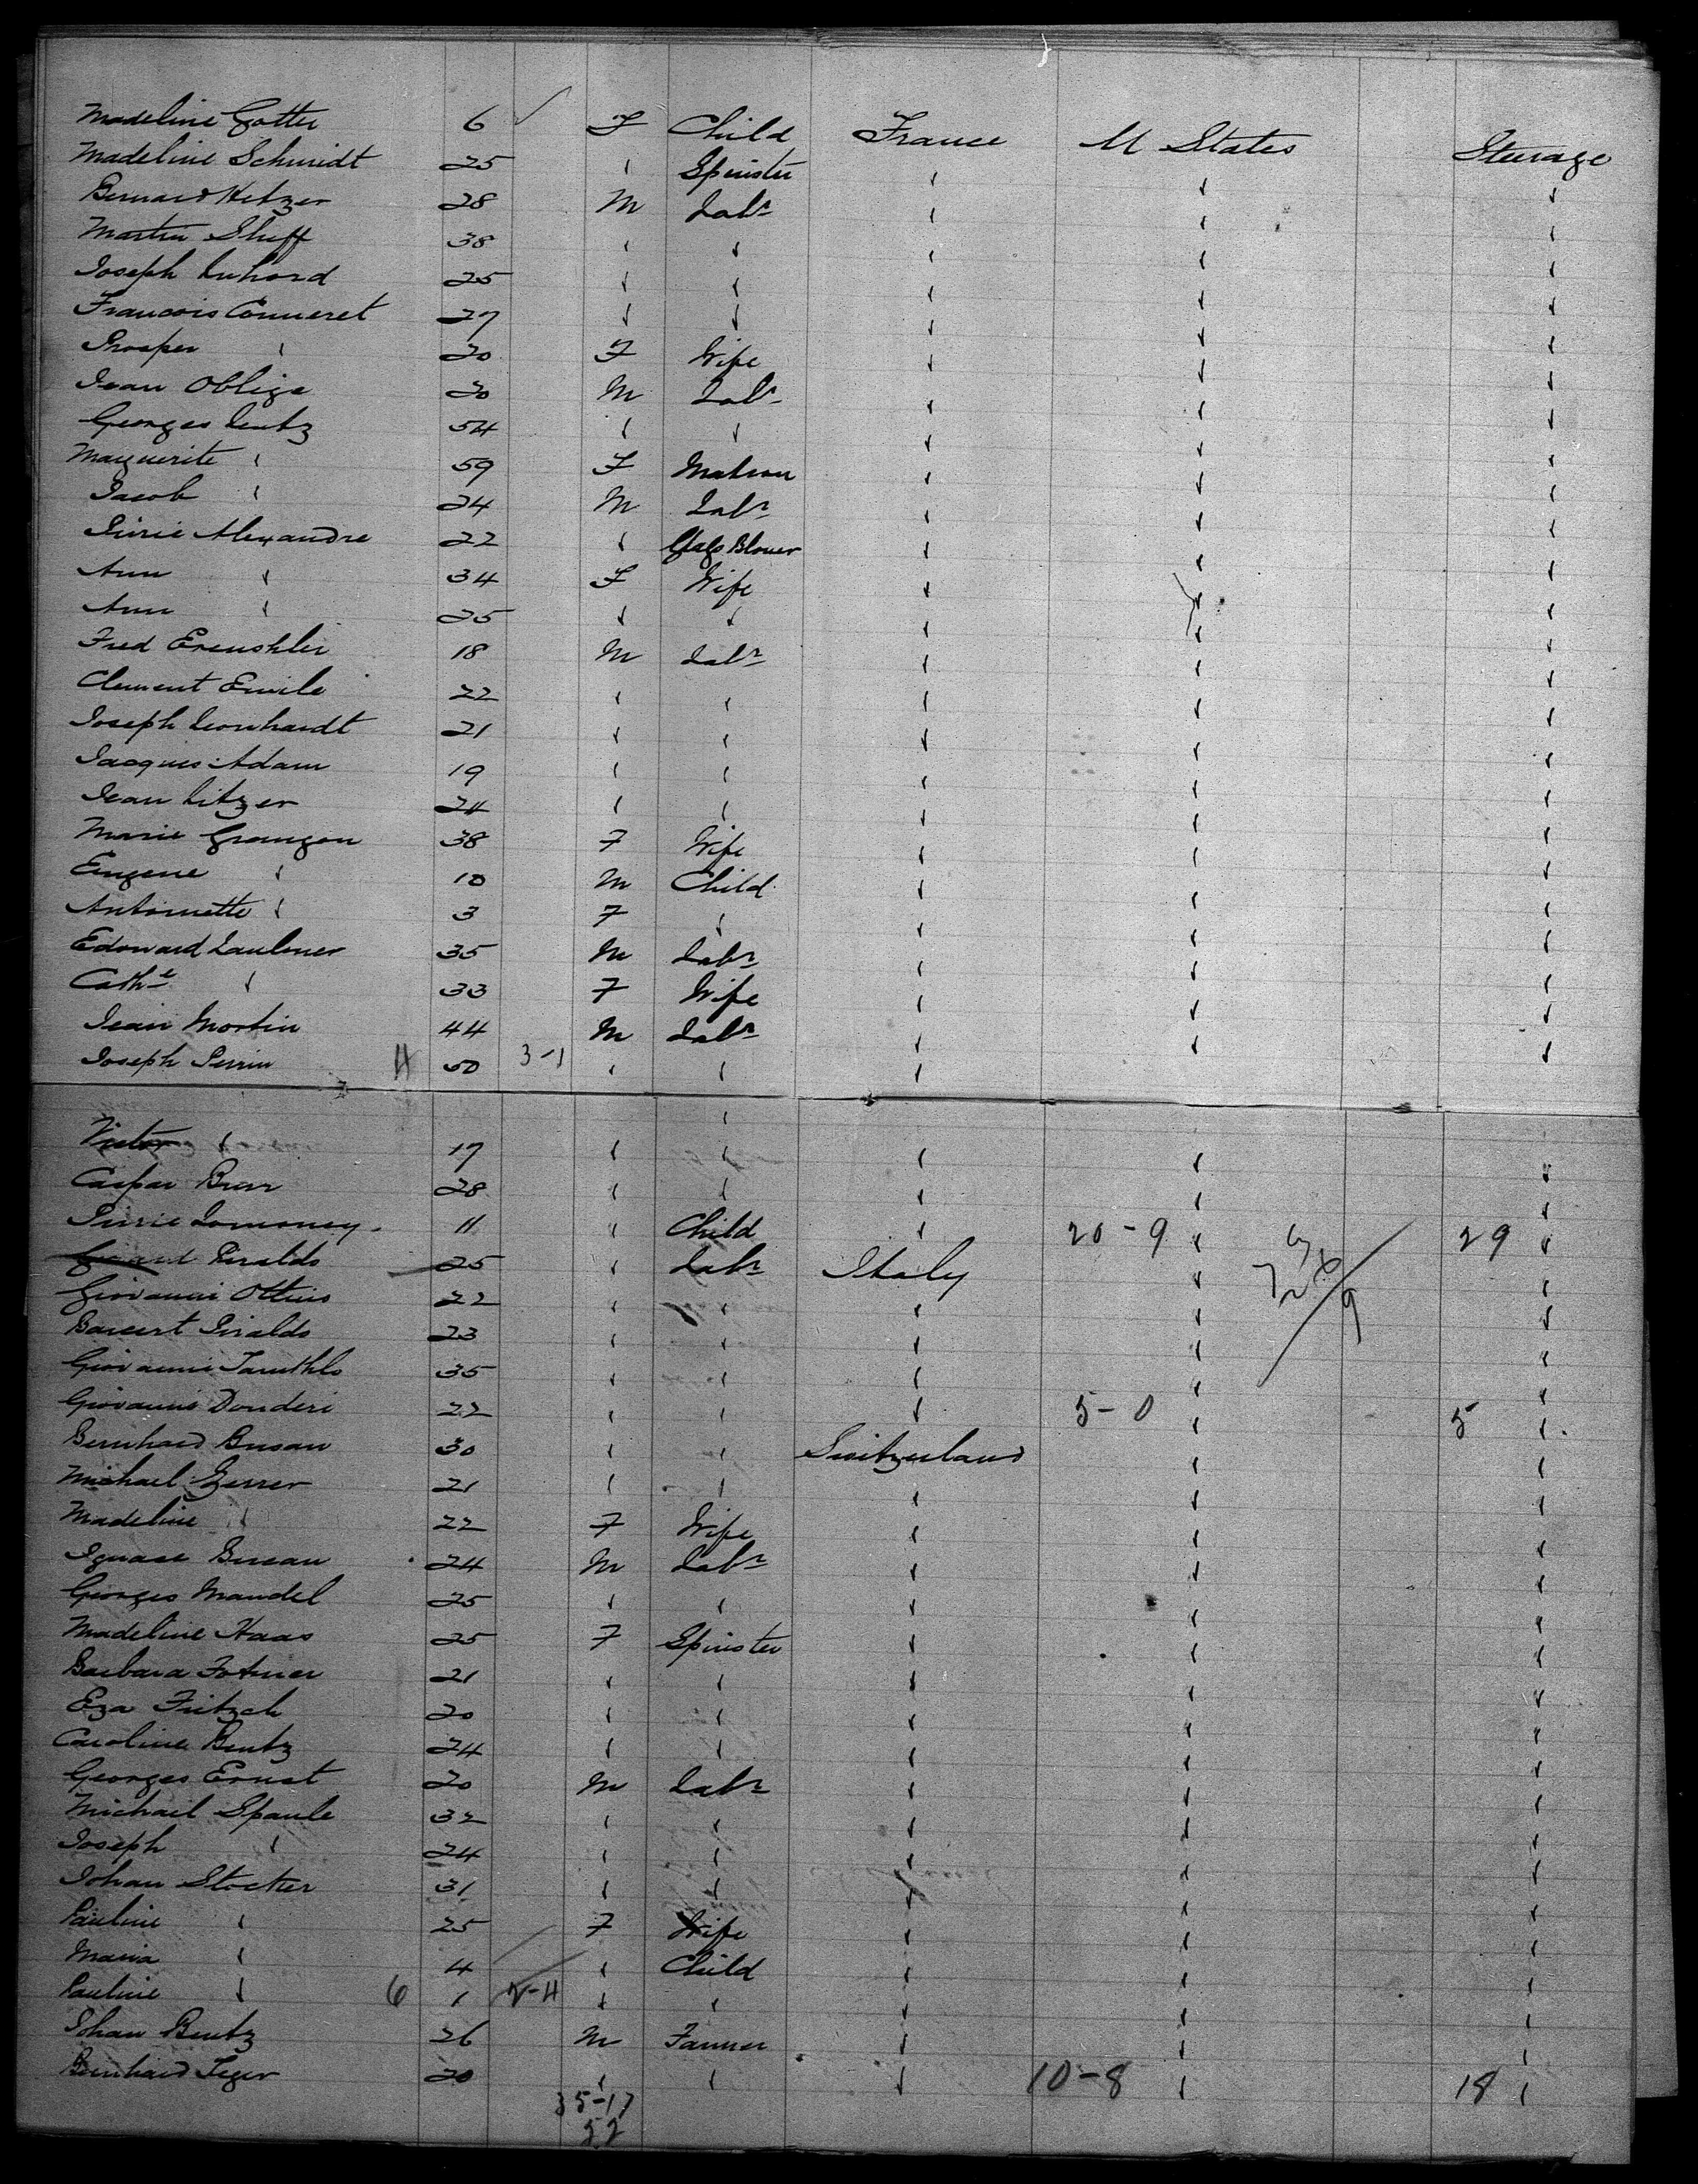 Madeline Gotter 6 ✓ F Child France U States Steerage
Madeline Schmidt 25 " Spinster " " "
Bernard Hetzer 28 M Labr " " "
Martin Sheff 38 " " " " "
Joseph Luhard 25 " " " " "
Francois Conneret 27 " " " " "
Prosper " 20 F Wife " " "
Jean Oblige 20 M Labr " " "
Georges Lentz 54 " " " " "
Marguerite " 59 F Matron " " "
Jacob " 24 M Labr " " "
Pierre Alexandre 22 " Glass Blower " " "
Ann " 34 F Wife " " "
Ann " 25 " " " " "
Fred 18 M Labr " " "
Clement Emile 22 " " " " "
Joseph Leonhardt 21 " " " " "
Jacques Adam 19 " " " " "
Jean Litzer 24 " " " " "
Marie Grangon 38 F Wife " " "
Eugene " 10 M Child " " "
Antoinette " 3 F " " " "
Edouard Laulener 35 M Labr " " "
Cathe " 33 F Wife " " "
Jean Martin 44 M Labr " " "
Joseph Perrin 4 50 3-1 " " "
Victor " 17 " " " " "
Caspar Burr 28 " " " " "
Pierre Lomoney 11 " Child " 20-9 " 29 "
Piraldo 25 " Labr Italy " "
Giovanni Ottino 22 " " " " "
Piraldo 23 " " " " "
Giovanni 35 " " " " "
Giovanni Donderi 22 " " " 5-0 " 5 "
Bernhard Busan 30 " " Switzerland " "
Michael Gerrer 21 " " " " "
Madeline " 22 F Wife " " "
Ignace 24 M Labr " " "
Georges Mandel 25 " " " " "
Madeline Haas 25 F Spinster " " "
Barbara 21 " " " " "
Eza Fritzch 20 " " " " "
Caroline Bentz 24 " " " " "
Georges Ernst 20 M Labr " " "
Michael Spaule 32 " " " " "
Joseph " 24 " " " " "
Johan Stocker 31 " " " " "
Pauline " 25 F Wife " " "
Maria " 4 " Child " " "
Pauline " 6 1 2-4 " " " " "
Johan Bentz 26 M Farmer " " "
Bernhard Jeger 20 " " " 10-8 " 18 "
35-17
52